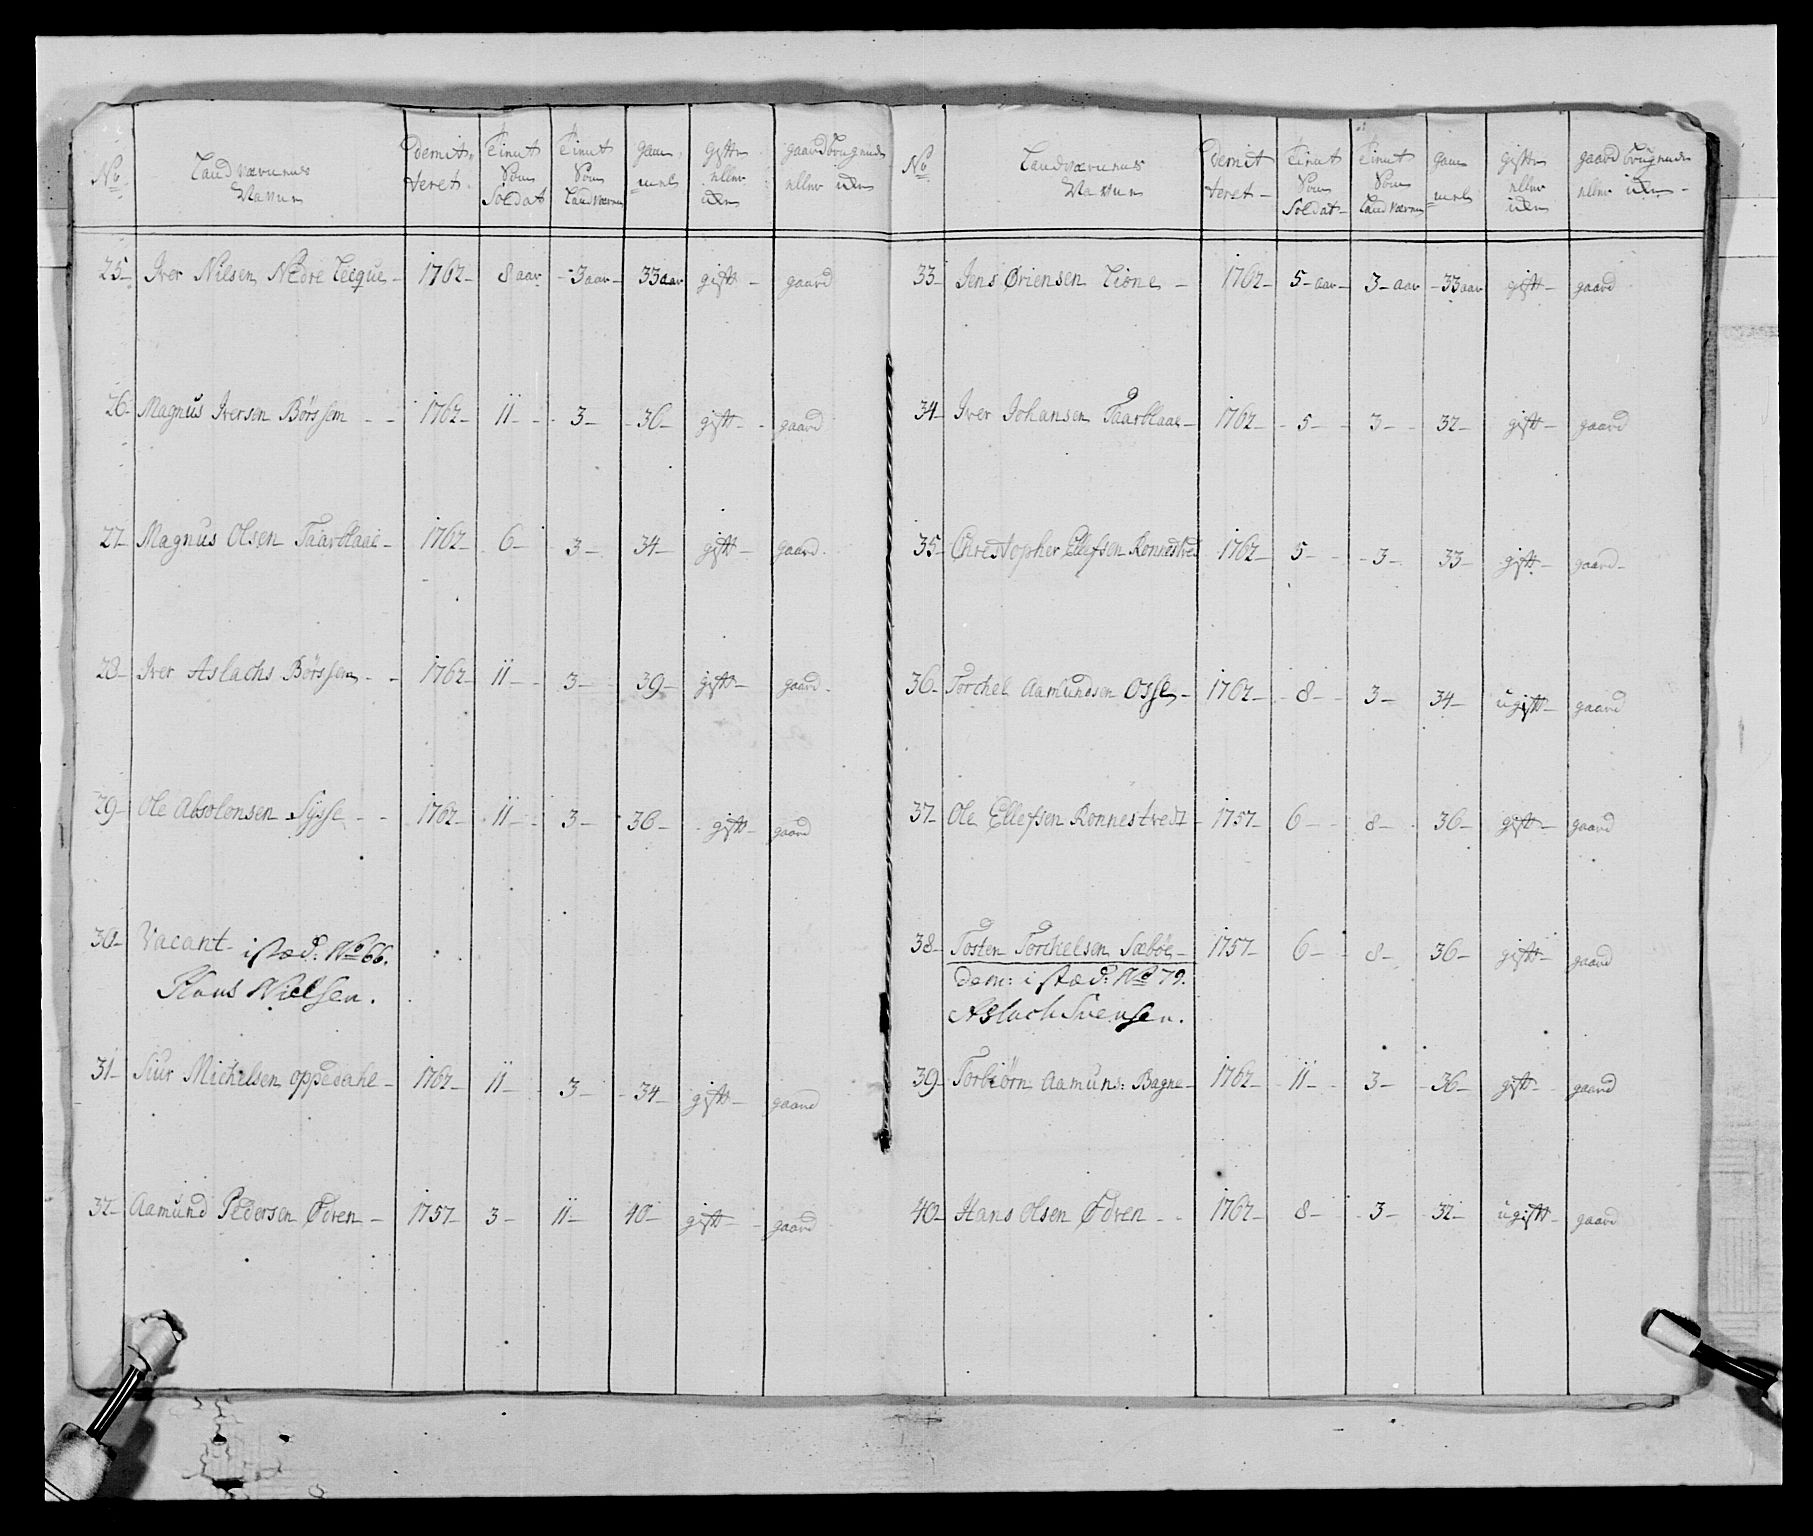 No Land Værnnes Navne Demitteret Tient Som Soldat Tient Som Land Værn gammel gift eller ikke gaardbrugende eller ikke
25 Iver Nilsen Nedre Lecque 1762 8 aar 3 aar 33 aar gift gaard
26 Magnus Iversen Börssem 1762 11 3 36 gift gaard
27 Magnus Olsen Taarblaae 1762 6 3 34 gift gaard
28 Iver Aslachs Börssem 1762 11 3 39 gift gaard
29 Ole Absolonsen Sysse 1762 11 3 36 gift gaard
30 Vacant i stæd: No 66.
Hans Nielsen.
31 Siur Michelsen Oppedahl 1762 11 3 34 gift gaard
32 Aamund Pedersen Ødven 1757 3 11 40 gift gaard
No Land Værnnes Navne Demitteret Tient Som Soldat Tient Som Land Værn gammel gift eller ikke gaard brugende eller ikke
33 Jens Øriensen Lione 1762 5 aar 3 aar 33 aar gift gaard
34 Iver Johansen Taarblaae 1762 5 3 32 gift gaard
35 Chrestopher Ellefsen Ronnestved 1762 5 3 33 gift gaard
36 Torchel Aamundsen Osse 1762 8 3 34 ugift gaard
37 Ole Ellefsen Ronnestvedt 1757 6 8 36 gift gaard
38 Tosten Torchelsen Sæbøe 1757 6 8 36 gift gaard
Dem: i stæd: No 79.
Aslach Svensen.
39 Torbiörn Aamuns: Bagne 1762 11 3 36 gift gaard
40 Hans Olsen Ødven 1762 8 3 32 ugift gaard